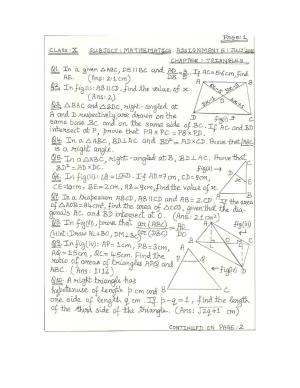 PAGE: 1
CLASS: X SUBJECT: MATHEMATICS ASSIGNMENT 6: JULY
CHAPTER: TRIANGLES
Q1. In a given △ABC, DE ∥ BC and AD/DB = 3/5. If AC = 5.6cm, find
AE. (Ans: 2.1 cm)
Q2. In fig(i): AB ∥ CD, find the value of x.
(Ans: 2)
Q3. △BAC and △BDC, right-angled at
A and D respectively are drawn on the
same base BC and on the same side of BC. If AC and BD
intersect at P, prove that PA × PC = PB × PD.
fig(i)
Q4. In a △ABC, BD⊥AC and BD² = AD×CD. Prove that ∠ABC
is a right angle.
Q5. In a △ABC, right-angled at B, BD⊥AC. Prove that
BD² = AD×DC.
fig(ii)
Q6. In fig(ii): If AD = 7cm, CD = 9cm,
CE = 10cm, BE = 2cm, AB = 9cm, find the value of x.
Q7. In a trapezium ABCD, AB ∥ CD and AB = 2CD. If the area
of △AOB = 84cm², find the area of △COD, given that the dia-
gonals AC and BD intersect at O. (Ans: 21cm²)
Q8. In fig(iii), prove that ar(ABC)/ar(DBC) = AO/DO
(Hint: Draw AL⊥BC, DM⊥BC)
fig(iii)
Q9. In fig(iv): AP = 1cm, PB = 3cm,
AQ = 1.5cm, QC = 4.5cm. Find the
ratio of areas of triangles APQ and
ABC. (Ans: 1:16)
fig(iv)
Q10. A right triangle has
hypotenuse of length p cm and
one side of length q cm. If p-q = 1, find the length
of the third side of the triangle. (Ans: √2q+1 cm)
CONTINUED ON PAGE: 2